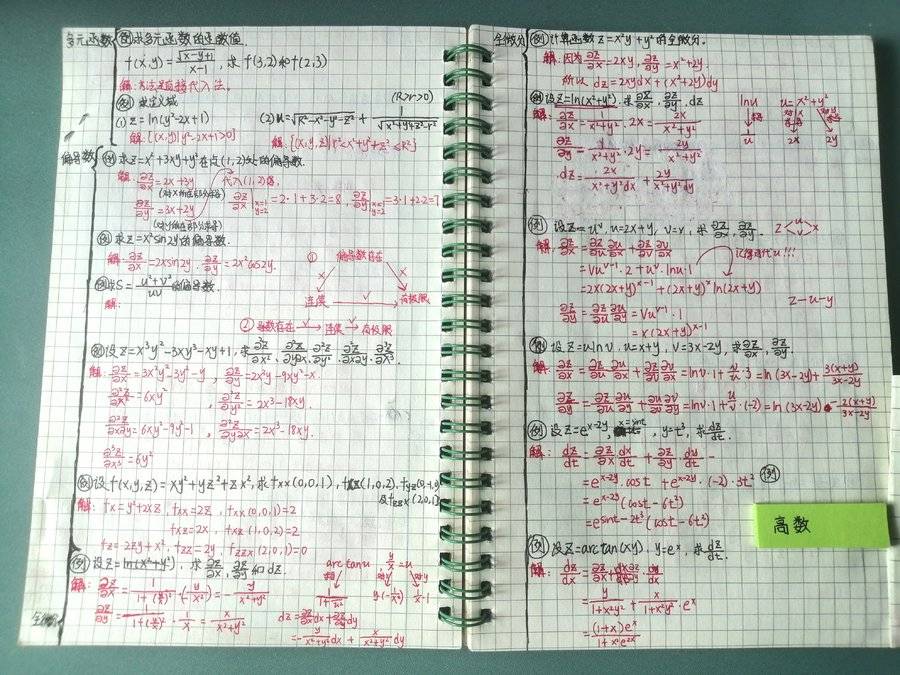 多元函数
例 求多元函数的函数值.
f(x,y)=√(x-y+1)/(x-1), 求f(3,2)和f(2,3)
解:方法是直接代入法。
例 求定义域
(R>r>0)
(1) z=ln(y²-2x+1) (2) u=√(R²-x²-y²-z²) + 1/√(x²+y²+z²-r²)
解:{(x,y)|y²-2x+1>0} 解:{(x,y,z)|r²<x²+y²+z²≤R²}
偏导数
例 求z=x²+3xy+y²在点(1,2)处的偏导数.
解:∂z/∂x=2x+3y 代入(1,2)得,
∂z/∂y=3x+2y ∂z/∂x|x=1 y=2 =2·1+3·2=8, ∂z/∂y|x=1 y=2 =3·1+2·2=7
例 求z=x²sin2y的偏导数.
解:∂z/∂x=2xsin2y, ∂z/∂y=2x²cos2y.
① 偏导数存在
例 求S=(u²+v²)/uv的偏导数.
解:
连续 √ 有极限
② 导数存在 √ 连续 √ 有极限
例 设z=x³y²-3xy³-xy+1, 求∂²z/∂x², ∂²z/∂y∂x, ∂²z/∂y², ∂²z/∂x∂y, ∂³z/∂x³.
解:∂z/∂x=3x²y²-3y³-y, ∂z/∂y=2x³y-9xy²-x.
∂²z/∂x²=6xy², ∂²z/∂y²=2x³-18xy.
∂²z/∂x∂y=6x²y-9y²-1, ∂²z/∂y∂x=2x³-18xy.
∂³z/∂x³=6y²
例 设f(x,y,z)=xy²+yz²+zx², 求fxx(0,0,1), fxz(1,0,2), fyz(0,-1,0)
及fzzx(2,0,1)
解:fx=y²+2xz, fxx=2z, fxx(0,0,1)=2
fxz=2x, fxz(1,0,2)=2
fz=2zy+x², fzz=2y, fzzx(2,0,1)=0
例 设z=ln(x²+y²), 求∂z/∂x, ∂z/∂y和dz. arctanu, y/x=u
解:∂z/∂x=1/(1+(y/x)²)·(-y/x²)=-y/(x²+y²) y·(-1/x²) 1/x·1
∂z/∂y=1/(1+(y/x)²)·1/x=x/(x²+y²) dz=∂z/∂x dx+∂z/∂y dy
=-y/(x²+y²)dx+x/(x²+y²)dy
全微分
全微分
例 计算函数z=x²y+y²的全微分.
解:因为∂z/∂x=2xy, ∂z/∂y=x²+2y
所以 dz=2xydx+(x²+2y)dy
例 设z=ln(x²+y²), 求∂z/∂x, ∂z/∂y, dz lnu u=x²+y²
解:∂z/∂x=1/(x²+y²)·2x=2x/(x²+y²) 1/u 2x 2y
∂z/∂y=1/(x²+y²)·2y=2y/(x²+y²)
dz=2x/(x²+y²)dx+2y/(x²+y²)dy
例 设z=uᵛ, u=2x+y, v=x, 求∂z/∂x, ∂z/∂y. z<u v>x
解:∂z/∂x=∂z/∂u ∂u/∂x+∂z/∂v ∂v/∂x 记得替代u!!!
=vuᵛ⁻¹·2+uᵛ·lnu·1
=2x(2x+y)ˣ⁻¹+(2x+y)ˣln(2x+y)
∂z/∂y=∂z/∂u ∂u/∂y=vuᵛ⁻¹·1 z-u-y
=x(2x+y)ˣ⁻¹
例 设z=ulnv, u=x+y, v=3x-2y, 求∂z/∂x, ∂z/∂y.
解:∂z/∂x=∂z/∂u ∂u/∂x+∂z/∂v ∂v/∂x=lnv·1+u/v·3=ln(3x-2y)+3(x+y)/(3x-2y)
∂z/∂y=∂z/∂u ∂u/∂y+∂z/∂v ∂v/∂y=lnv·1+u/v·(-2)=ln(3x-2y)-2(x+y)/(3x-2y)
例 设z=eˣ⁻²ʸ, x=sint, y=t³, 求dz/dt.
解:dz/dt=∂z/∂x dx/dt+∂z/∂y dy/dt
=eˣ⁻²ʸcost+eˣ⁻²ʸ·(-2)·3t² 例
=eˣ⁻²ʸ(cost-6t²)
=e^(sint-2t³)(cost-6t²)
高数
例 设z=arctan(xy), y=eˣ, 求dz/dt.
解:dz/dx=∂z/∂x+∂z/∂y dy/dx
=y/(1+x²y²)+x/(1+x²y²)·eˣ
=(1+x)eˣ/(1+x²e²ˣ)